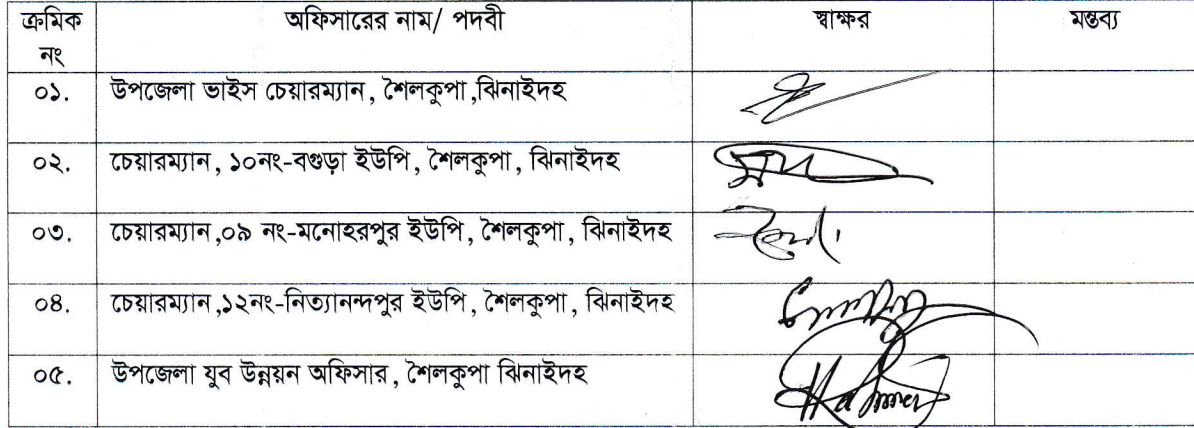 ক্রমিক নং	অফিসারের নাম/ পদবী	স্বাক্ষর	মন্তব্য
০১.	উপজেলা ভাইস চেয়ারম্যান, শৈলকুপা,ঝিনাইদহ
০২.	চেয়ারম্যান, ১০নং-বগুড়া ইউপি, শৈলকুপা, ঝিনাইদহ
০৩.	চেয়ারম্যান,০৯ নং-মনোহরপুর ইউপি, শৈলকুপা, ঝিনাইদহ
০৪.	চেয়ারম্যান,১২নং-নিত্যানন্দপুর ইউপি, শৈলকুপা, ঝিনাইদহ
০৫.	উপজেলা যুব উন্নয়ন অফিসার, শৈলকুপা ঝিনাইদহ